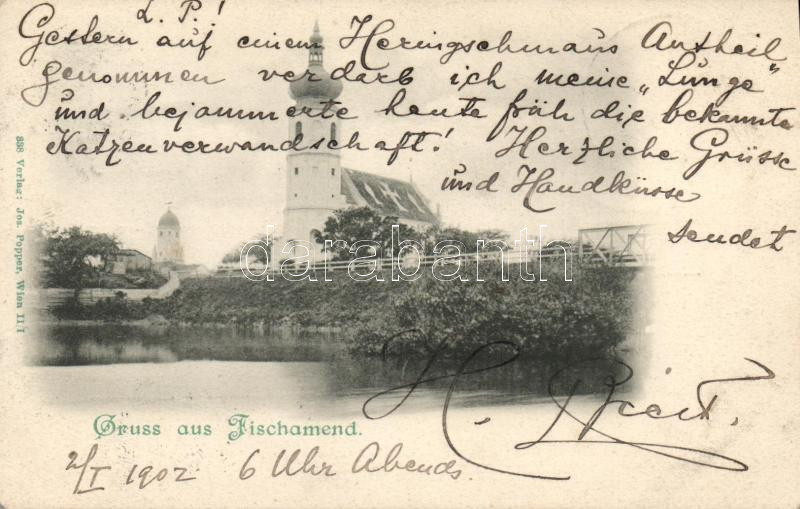 L. P.!
Gestern auf einem Heringschmaus Antheil
genommen verdarb ich meine "Lunge"
und bejammerte heute früh die bekannte
Katzenverwandschaft! Herzliche Grüsse
und Handküsse
sendet
338 Verlag: Jos. Popper, Wien II/1
darabanth
Gruss aus Fischamend.
2/I 1902 6 Uhr Abends.